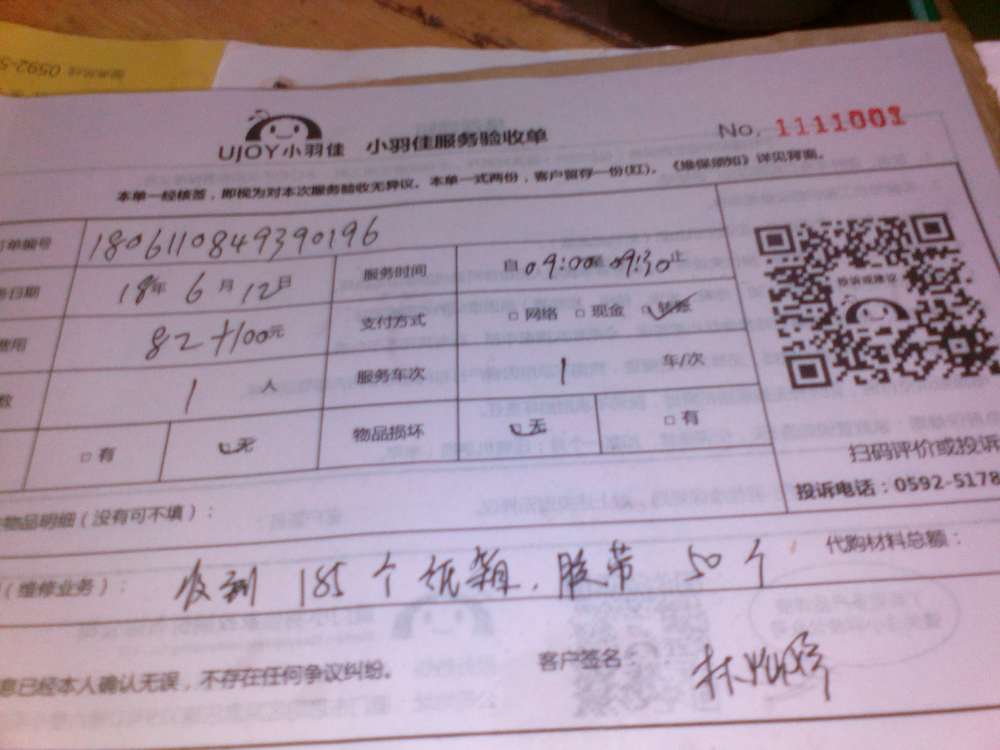 0592-5
UJOY小羽佳 小羽佳服务验收单 No. 1111001
本单一经核签，即视为对本次服务验收无异议。本单一式两份，客户留存一份(红)。《维保须知》详见背面。
订单编号 1806110849390196
务日期 18年 6月 12日 服务时间 自09:00至09:30止
费用 82+100元 支付方式 □网络 □现金 转账
数 1 人 服务车次 1 车/次
□有 无 物品损坏 无 □有
投诉或建议
扫码评价或投诉
投诉电话：0592-5178
物品明细（没有可不填）：
代购材料总额：
（维修业务）： 收到 185个纸箱，胶带 50个
息已经本人确认无误，不存在任何争议纠纷。 客户签名： 林